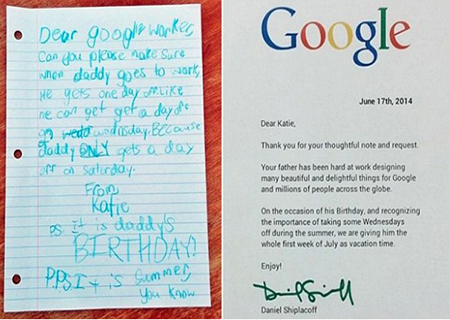 Dear google worker,
Can you please make sure
when daddy goes to work,
He gets one day off. Like
he can get get a day off
on wedo wednesday. Because
daddy ONLY gets a day
off on saturday.
From
Katie
Ps it is daddy's
BIRTHDAY!
P.PS It is Summer,
You know
Google
June 17th, 2014
Dear Katie,
Thank you for your thoughtful note and request.
Your father has been hard at work designing
many beautiful and delightful things for Google
and millions of people across the globe.
On the occasion of his Birthday, and recognizing
the importance of taking some Wednesdays
off during the summer, we are giving him the
whole first week of July as vacation time.
Enjoy!
Daniel Shiplacoff